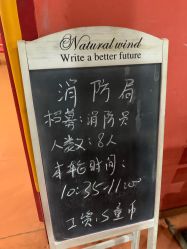 Natural wind
Write a better future
消防局
招募:消防员
人数:8人
本轮时间:
10:35-11:00
工资:5童币